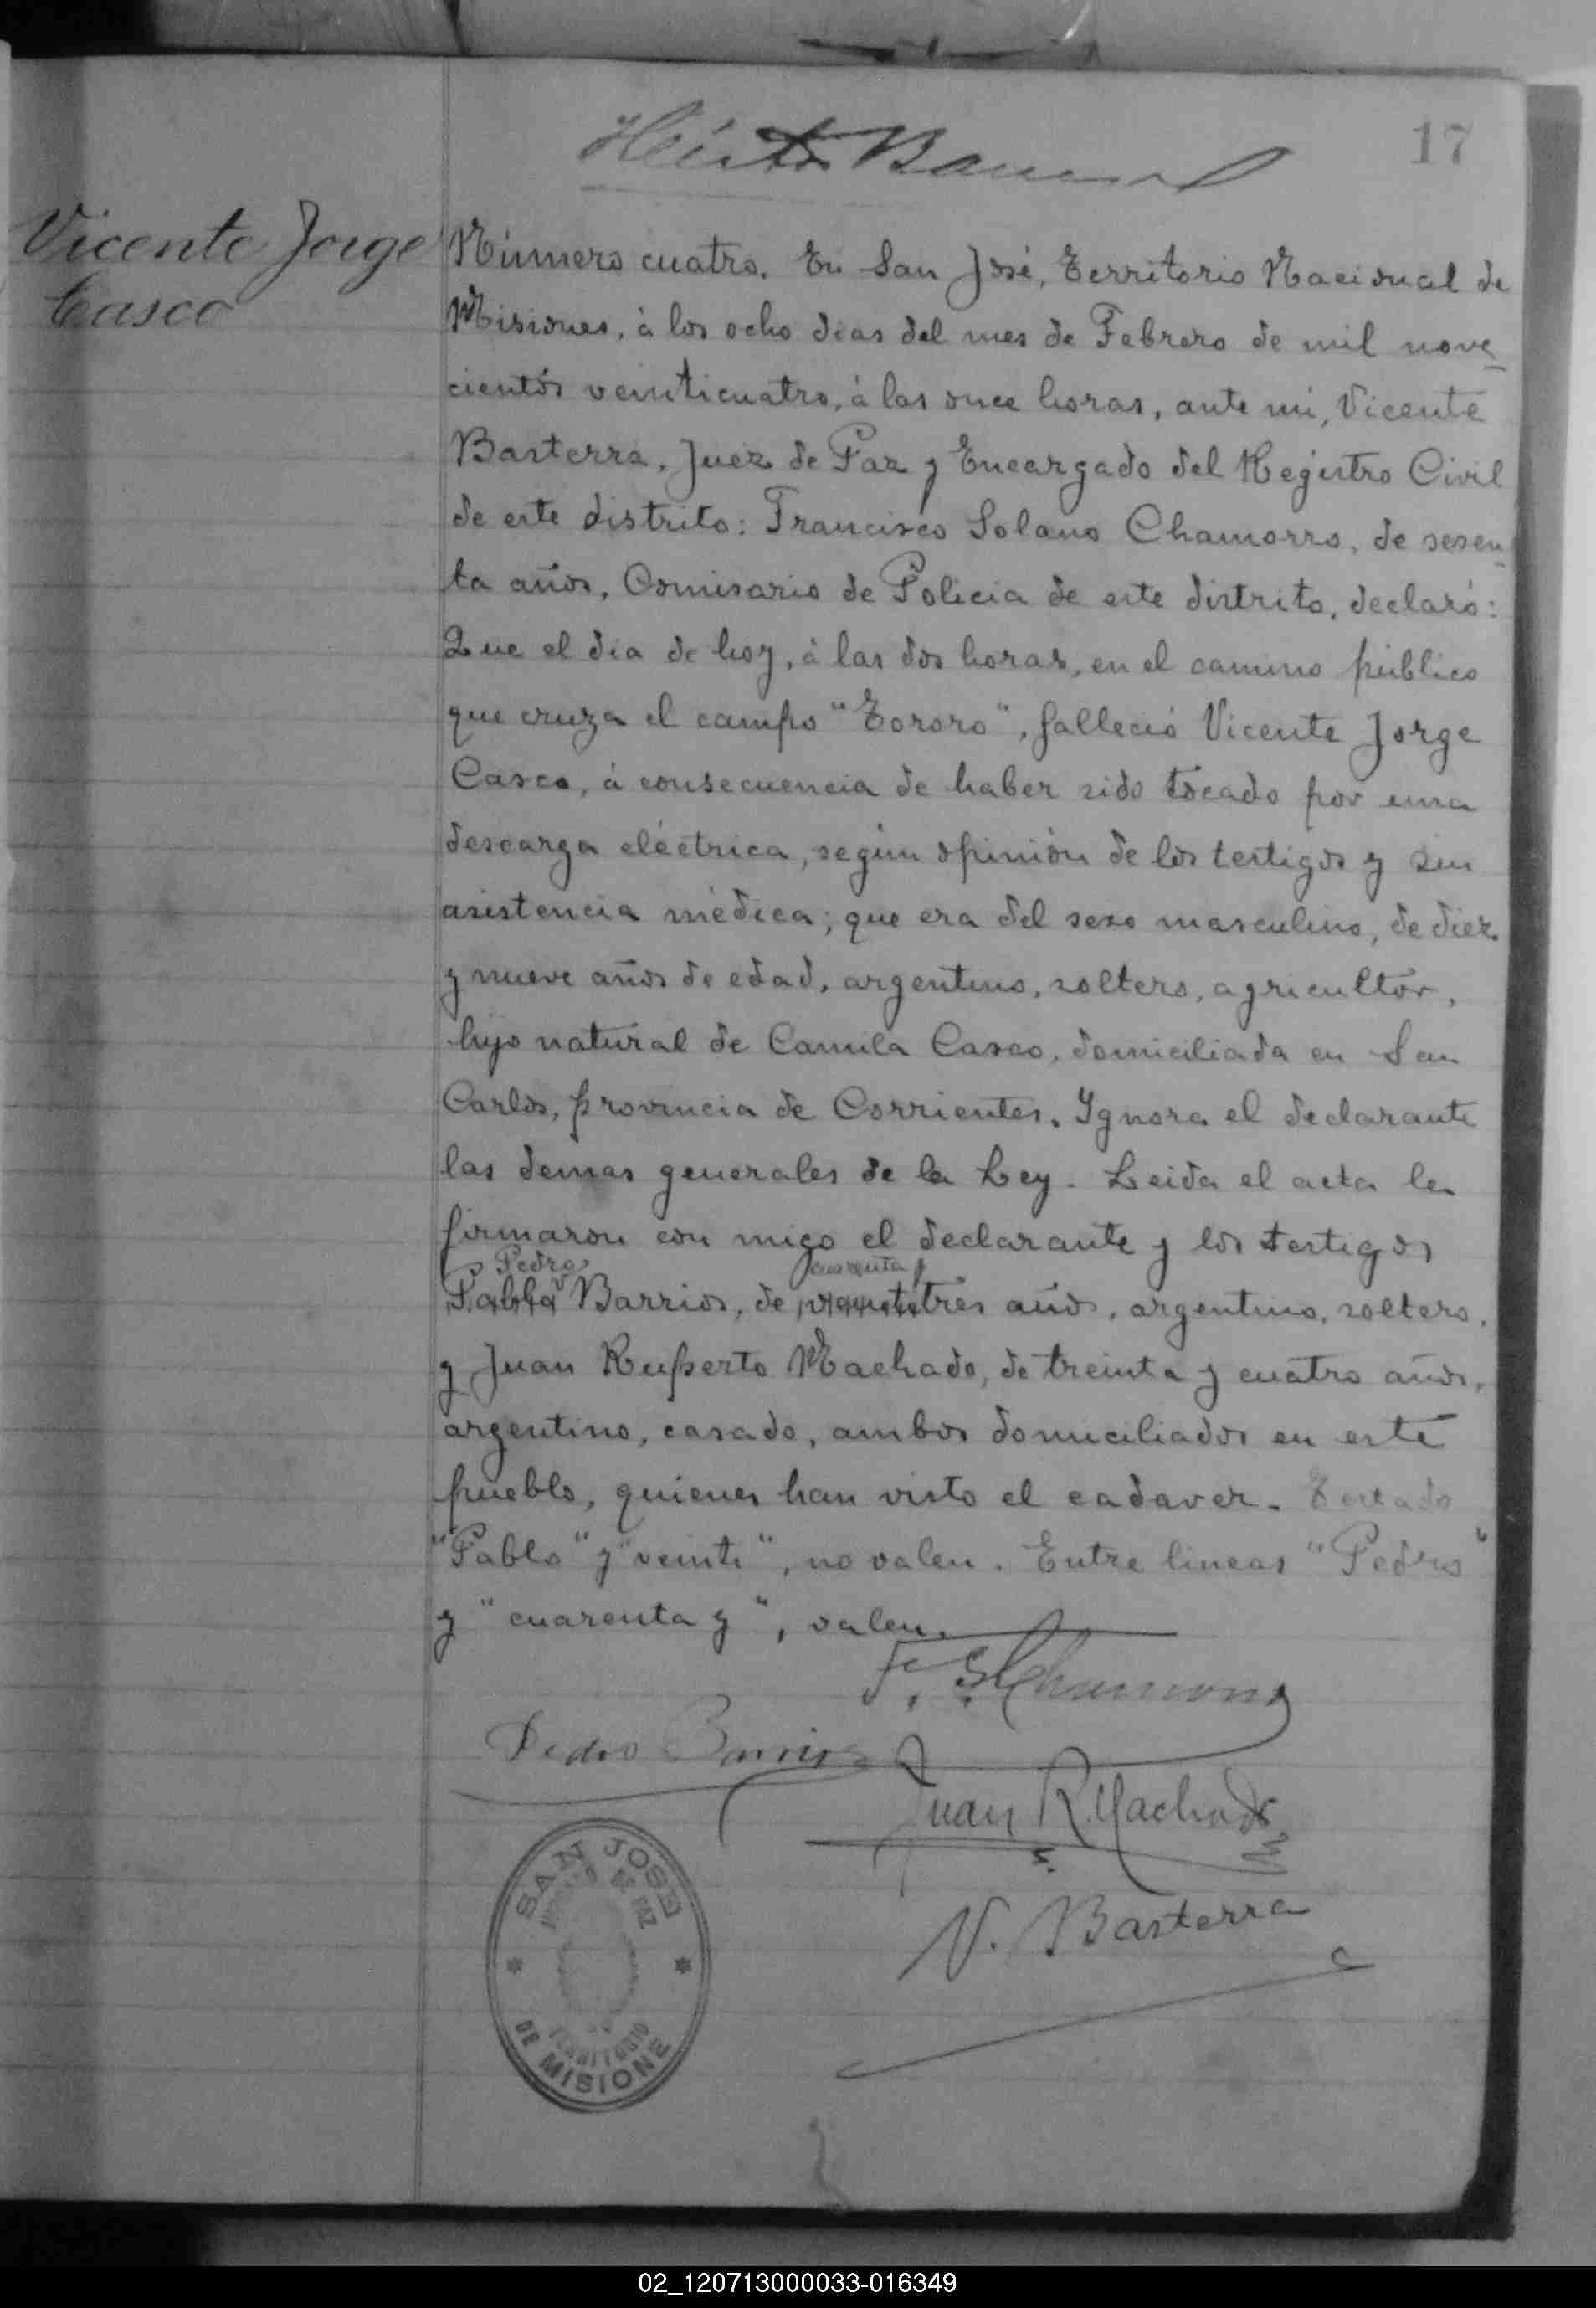 17
Vicente Jorge
Casco
Número cuatro. En San José, Territorio Nacional de
Misiones, à los ocho dias del mes de Febrero de mil nove-
cientos veinticuatro, à las once horas, ante mi, Vicente
Basterra, Juez de Paz y Encargado del Registro Civil
de este distrito: Francisco Solano Chamorro, de sesen-
ta años, Comisario de Policia de este distrito, declaró:
Que el dia de hoy, à las dos horas, en el camino público
que cruza el campo "Tororo", falleció Vicente Jorge
Casco, à consecuencia de haber sido tocado por una
descarga eléctrica, según opinión de los testigos y sin
asistencia médica; que era del sexo masculino, de diez
y nueve años de edad, argentino, soltero, agricultor,
hijo natural de Camila Casco, domiciliada en San
Carlos, provincia de Corrientes. Ignora el declarante
las demas generales de la Ley. Leida el acta la
firmaron con migo el declarante y los testigos
Pedro cuarenta y
Pablo Barrios, de veintitres años, argentino, soltero,
y Juan Ruperto Machado, de treinta y cuatro años,
argentino, casado, ambos domiciliados en este
pueblo, quienes han visto el cadaver. Testado
"Pablo" y "veinti", no valen. Entre lineas "Pedro"
y "cuarenta y", valen.
F. S. Chamorro
Pedro Barrios
Juan R. Machado
V. Basterra
SAN JOSE
JUZGADO DE PAZ
TERRITORIO
DE MISIONE
02_120713000033-016349